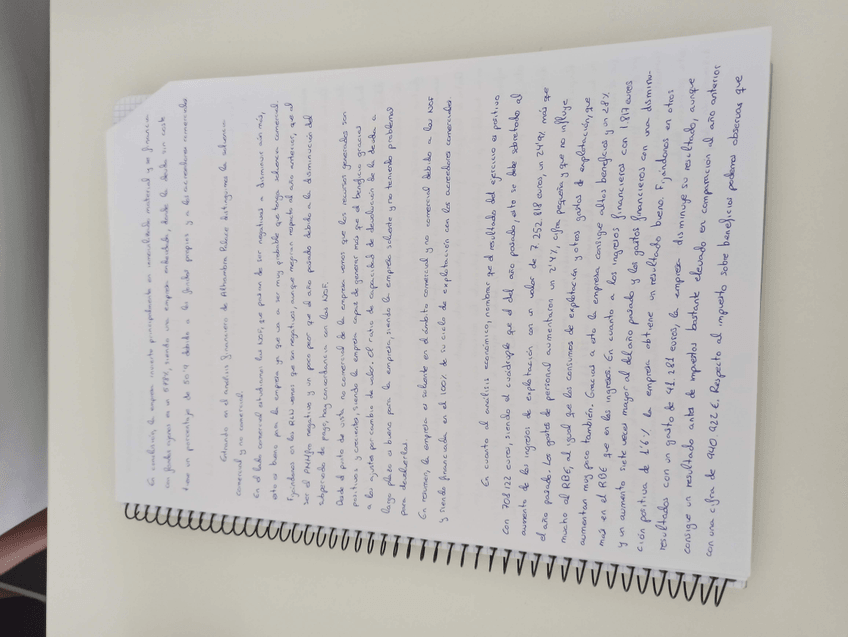 En conclusión, la empresa invierte principalmente en inmovilizado material y se financia
con fondos ajenos en un 59%, siendo una empresa endeudada, donde la deuda sin coste
tiene un porcentaje de debido a los fondos propios y a los acreedores comerciales
Entrando en el análisis financiero de Alhambra Palace distinguimos la solvencia
comercial y no comercial.
En el lado comercial estudiamos las NOF, que pasan de ser negativas a disminuir aún más,
esto es bueno para la empresa ya que va a ser muy probable que tenga solvencia comercial.
Fijándonos en los RLN vemos que son negativos, aunque mejoran respecto al año anterior, que al
ser el PMM negativo y un poco peor que el año pasado debido a la disminución del
subperíodo de pago, hay concordancia con las NOF.
Desde el punto de vista no comercial de la empresa vemos que los recursos generados son
positivos y crecientes, siendo la empresa capaz de generar más que el beneficio gracias
a los ajustes por cambio de valor. El ratio de capacidad de devolución de la deuda a
largo plazo es bueno para la empresa, siendo la empresa solvente y no teniendo problemas
para devolverla.
En resumen, la empresa es solvente en el ámbito comercial y no comercial debido a las NOF
y siendo financiada en el 100% de su ciclo de explotación con los acreedores comerciales.
En cuanto al análisis económico, nombrar que el resultado del ejercicio es positivo
con 708.122 euros, siendo el cuadruple que el del año pasado, esto se debe sobretodo al
aumento de los ingresos de explotación con un valor de 7.252.818 euros, un 24% más que
el año pasado. Los gastos de personal aumentaron un 2'4%, cifra pequeña y que no influye
mucho al RBE, al igual que los consumos de explotación y otros gastos de explotación, que
aumentan muy poco también. Gracias a esto la empresa consigue altos beneficios y un 28%
más en el RBE que en los ingresos. En cuanto a los ingresos financieros con 1.817 euros
y un aumento siete veces mayor al del año pasado y los gastos financieros con una disminu-
ción positiva de 1'6% la empresa obtiene un resultado bueno. Fijándonos en otros
resultados con un gasto de 41.281 euros, la empresa disminuye su resultado, aunque
consigue un resultado antes de impuestos bastante elevado en comparación al año anterior
con una cifra de 940.922 €. Respecto al impuesto sobre beneficios podemos observar que